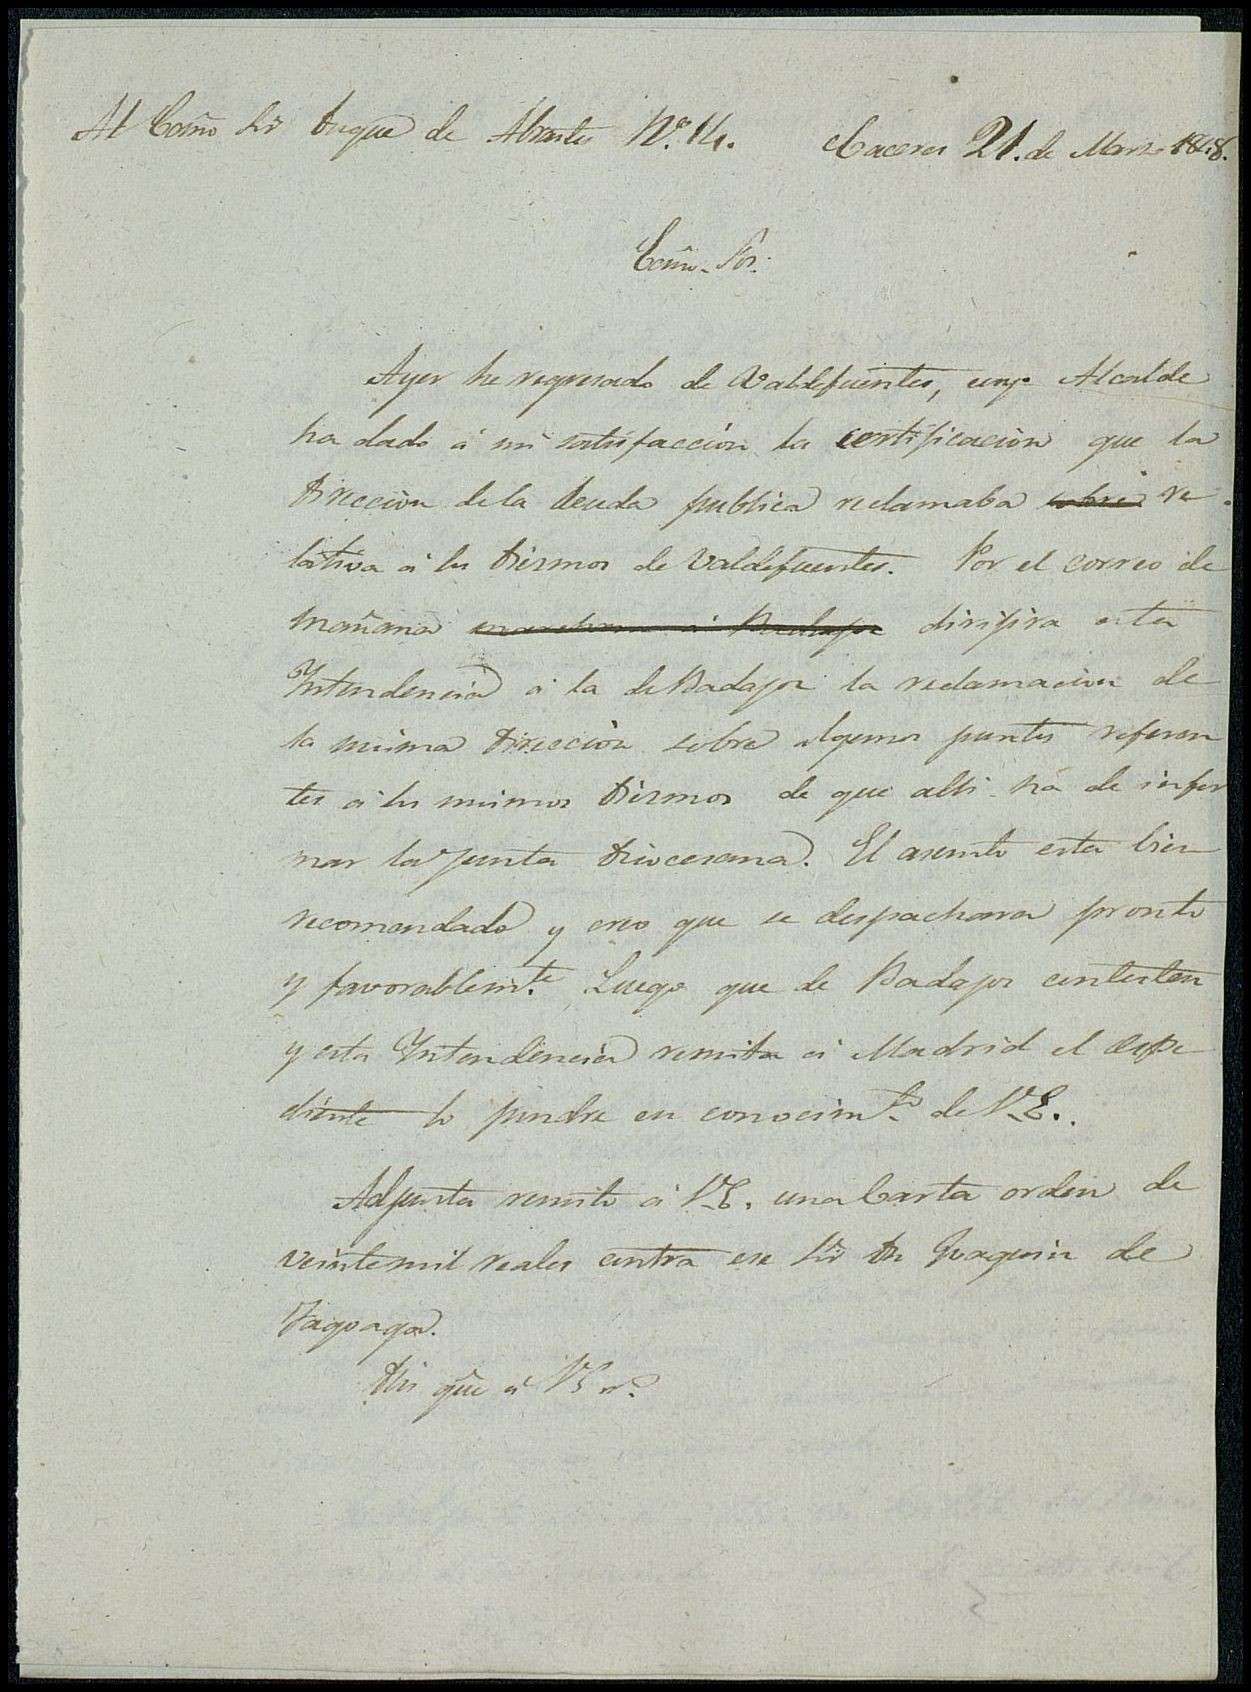 Al Exmo Sr Duque de Abrantes Nº. 14. Caceres 21. de Marzo 1848.
Exmo. Sor.
Ayer he regresado de Valdefuentes, cuyo Alcalde
ha dado á mi satisfacción la certificacion que la
Direccion de la deuda publica reclamaba sobre re
lativa á los Diezmos de Valdefuentes. Por el correo de
mañana marchara á Badajoz dirigira esta
Intendencia á la de Badajoz la reclamacion de
la misma Direccion sobre algunos puntos referen
tes á los mismos Diezmos de que alli há de infor
mar la Junta Diocesana. El asunto esta bien
recomendado y creo que se despachara pronto
y favorablemte. Luego que de Badajoz contesten
y esta Intendencia remita á Madrid el espe
diente lo pondre en conocimto de V.E.
Adjunta remito á V.E. una Carta orden de
veinte mil reales contra ese Sr Dn Joaquin de
Fagoaga.
Dios gue á V.E.